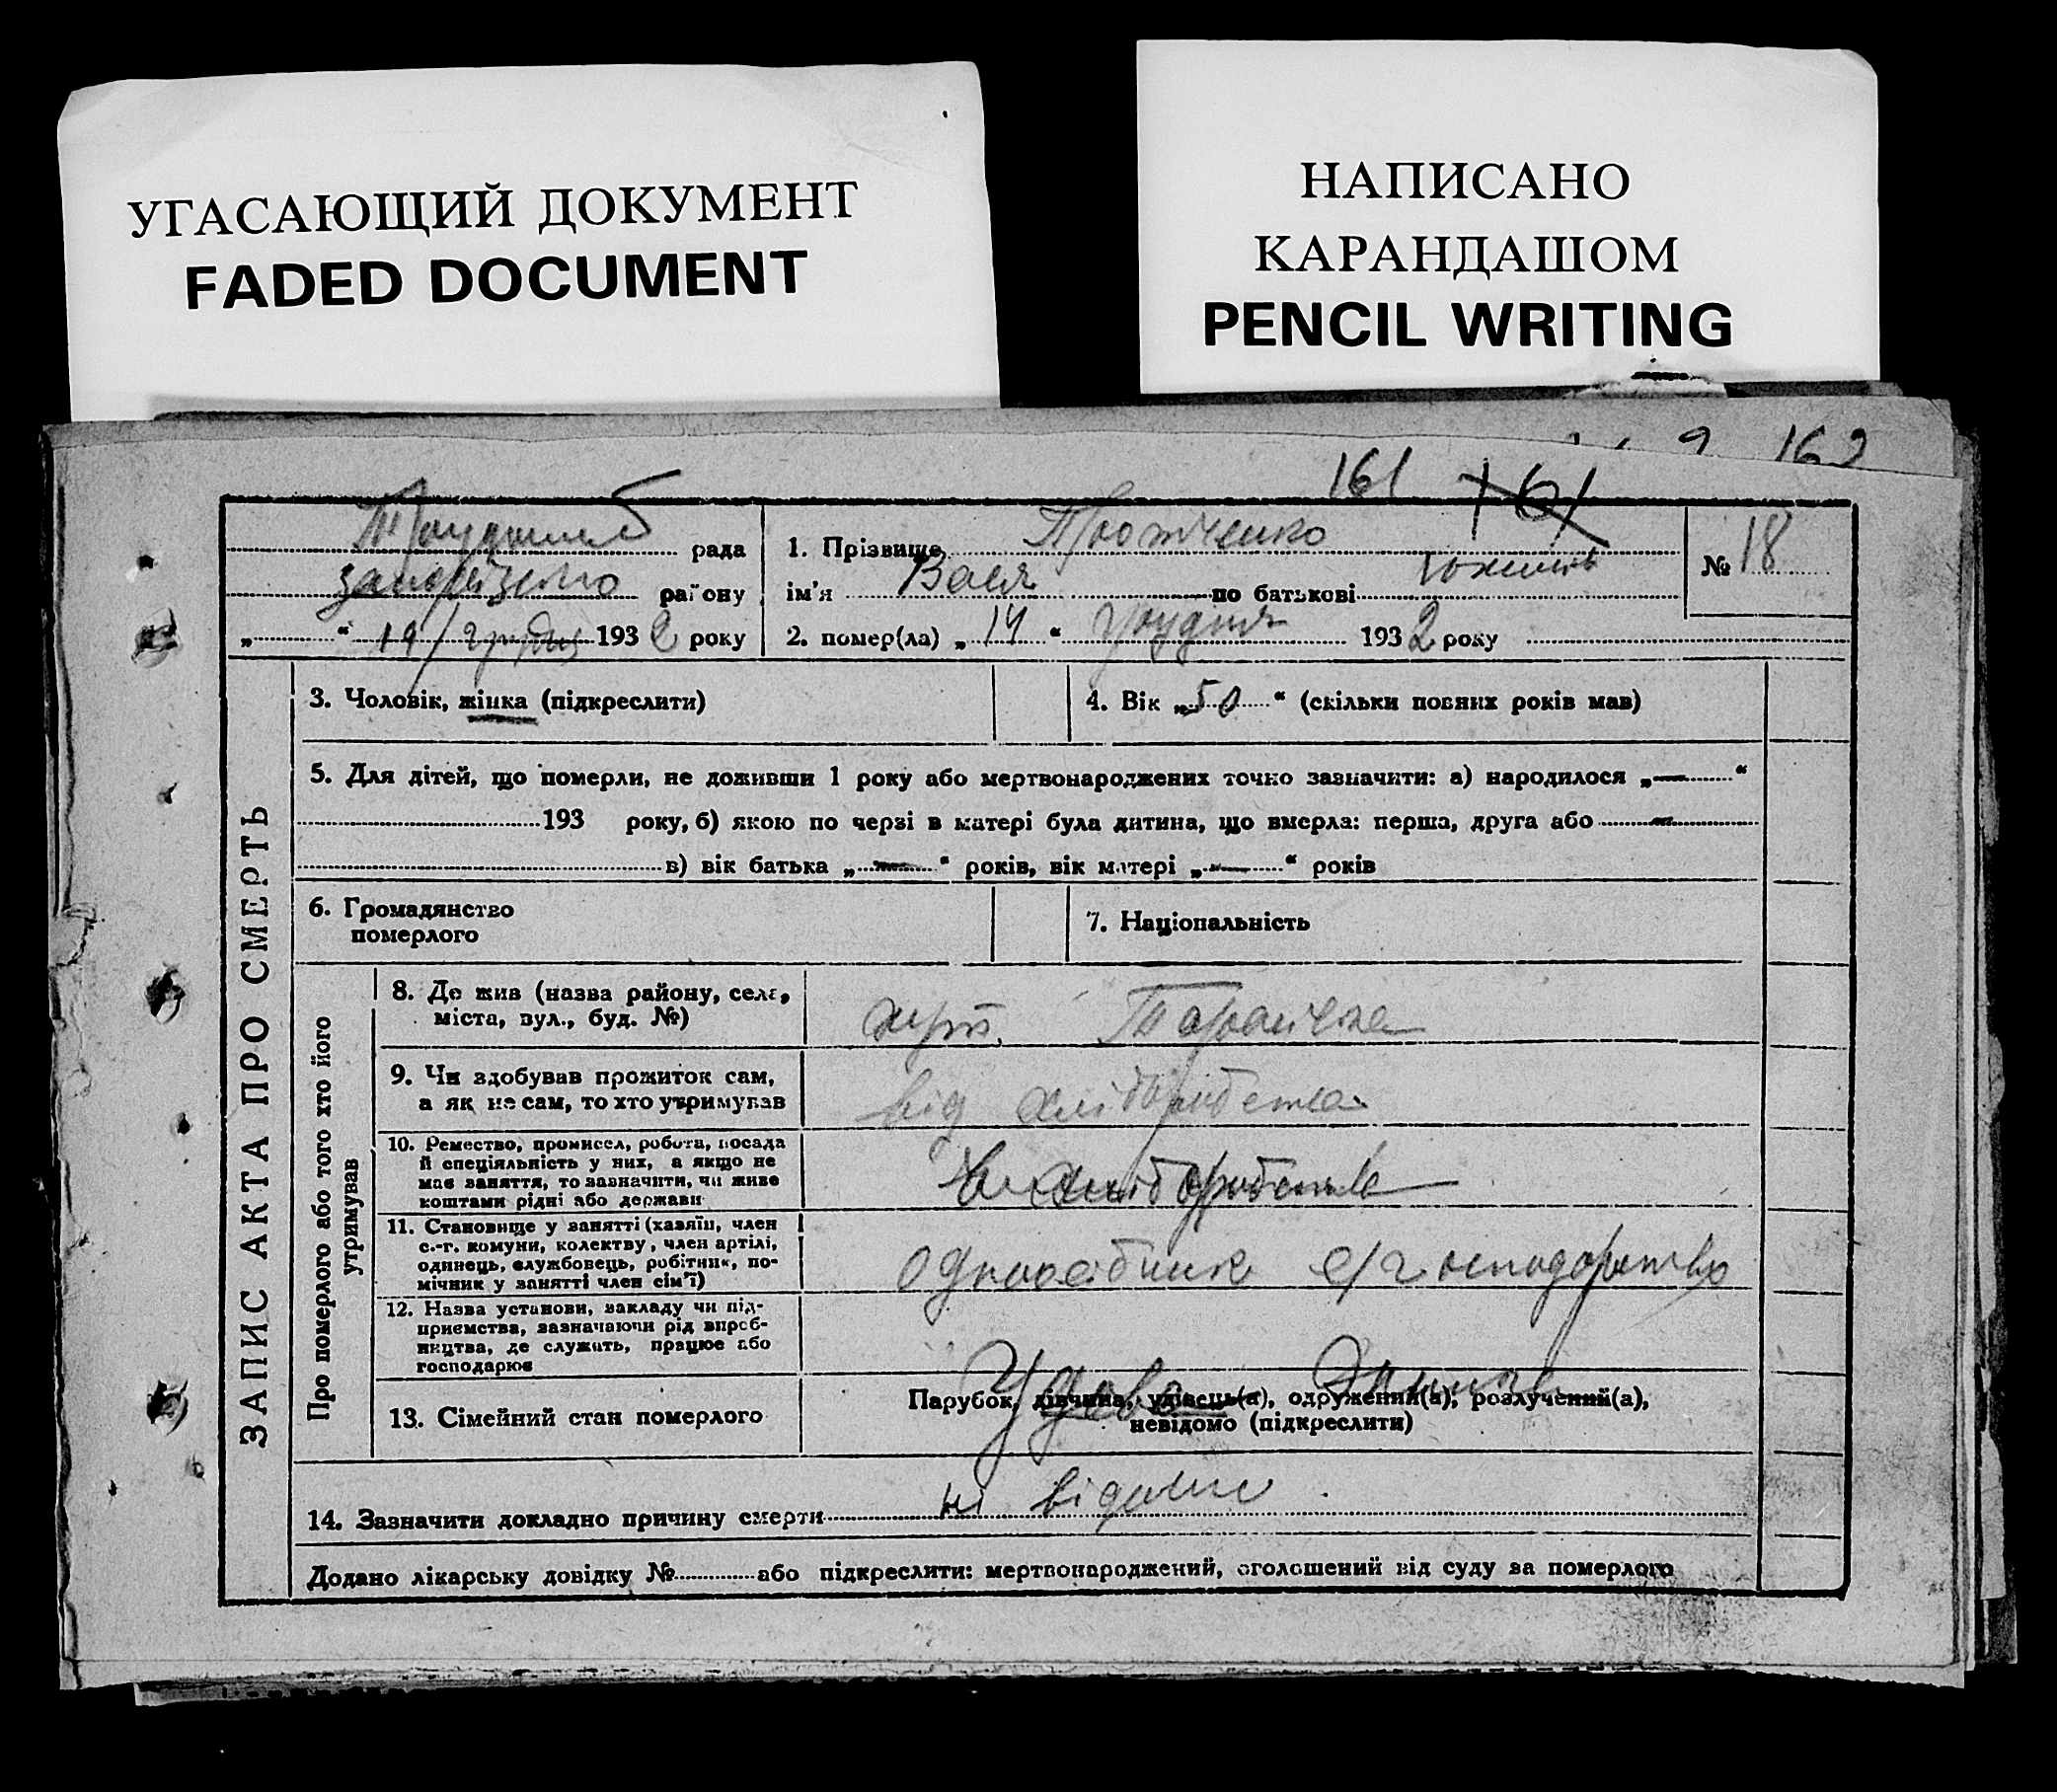 УГАСАЮЩИЙ ДОКУМЕНТ
FADED DOCUMENT
НАПИСАНО
КАРАНДАШОМ
PENCIL WRITING
162
161 161
рада
району
„ “ 19/грудня 1932 року
1. Прізвище
ім'я Васи по батькові
2. помер(ла) „14“ грудня 1932 року
№ 18
ЗАПИС АКТА ПРО СМЕРТЬ
3. Чоловік, жінка (підкреслити)
4. Вік „50“ (скільки повних років мав)
5. Для дітей, що померли, не доживши 1 року або мертвонароджених точно зазначити: а) народилося „—“
193 року, б) якою по черзі в матері була дитина, що вмерла: перша, друга або —
в) вік батька „—“ років, вік матері „—“ років
6. Громадянство
померлого
7. Національність
Про померлого або того хто його
утримував
8. Де жив (назва району, села,
міста, вул., буд. №)
хут.
9. Чи здобував прожиток сам,
а як не сам, то хто утримував
від хліборобства
10. Ремество, промисел, робота, посада
й спеціяльність у них, а якщо не
має заняття, то зазначити, чи живе
коштами рідні або держави
11. Становище у занятті (хазяїн, член
с.-г. комуни, колективу, член артілі,
одинець, службовець, робітник, по-
мічник у занятті член сім'ї)
одноосібник с/господарство
12. Назва установи, закладу чи під-
приємства, зазначаючи рід вироб-
ництва, де служить, працює або
господарює
13. Сімейний стан померлого
Удова
Парубок, дівчина, удівець(а), одружений(а), розлучений(а),
невідомо (підкреслити)
14. Зазначити докладно причину смерти ні відомо
Додано лікарську довідку № або підкреслити: мертвонароджений, оголошений від суду за померлого